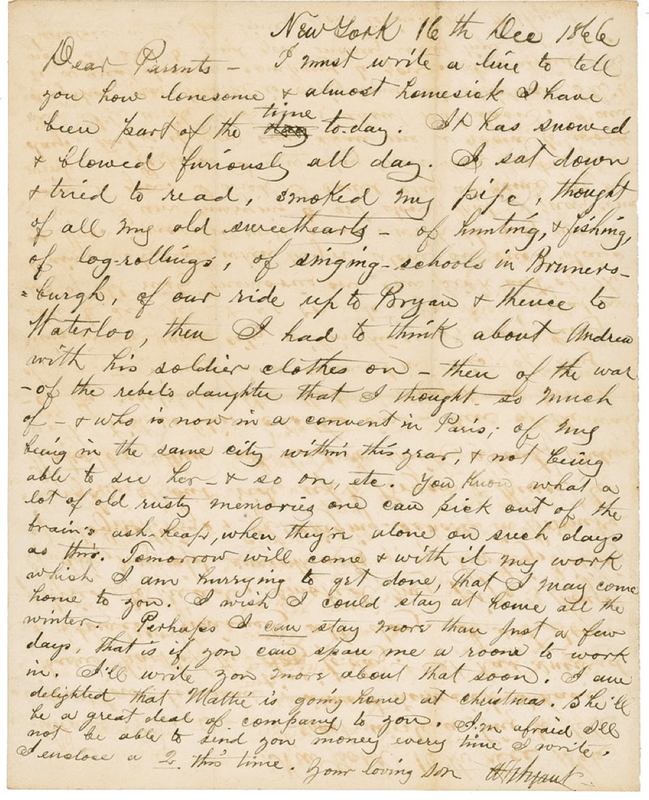 New York 16th Dec 1866
Dear Parents - I must write a line to tell
you how lonesome & almost homesick I have
been part of the time to-day. It has snowed
& blowed furiously all day. I sat down
& tried to read, smoked my pipe, thought
of all my old sweethearts - of hunting, & fishing,
of log-rollings, of singing-schools in Bruners-
=burgh, of our ride up to Bryan & thence to
Waterloo, then I had to think about Andrew
with his soldier clothes on - then of the war
- of the rebel's daughter that I thought so much
of - & who is now in a convent in Paris; of my
being in the same city within this year, & not being
able to see her - & so on, etc. You know what a
lot of old rusty memories one can pick out of the
brain's ash-heap, when they're alone on such days
as this. Tomorrow will come & with it my work
which I am hurrying to get done, that I may come
home to you. I wish I could stay at home all the
winter. Perhaps I can stay more than just a few
days, that is if you can spare me a room to work
in. I'll write you more about that soon. I am
delighted that Mattie is going home at christmas. She'll
be a great deal of company to you. I'm afraid I'll
not be able to send you money every time I write.
I enclose a 2. this time. Your loving son